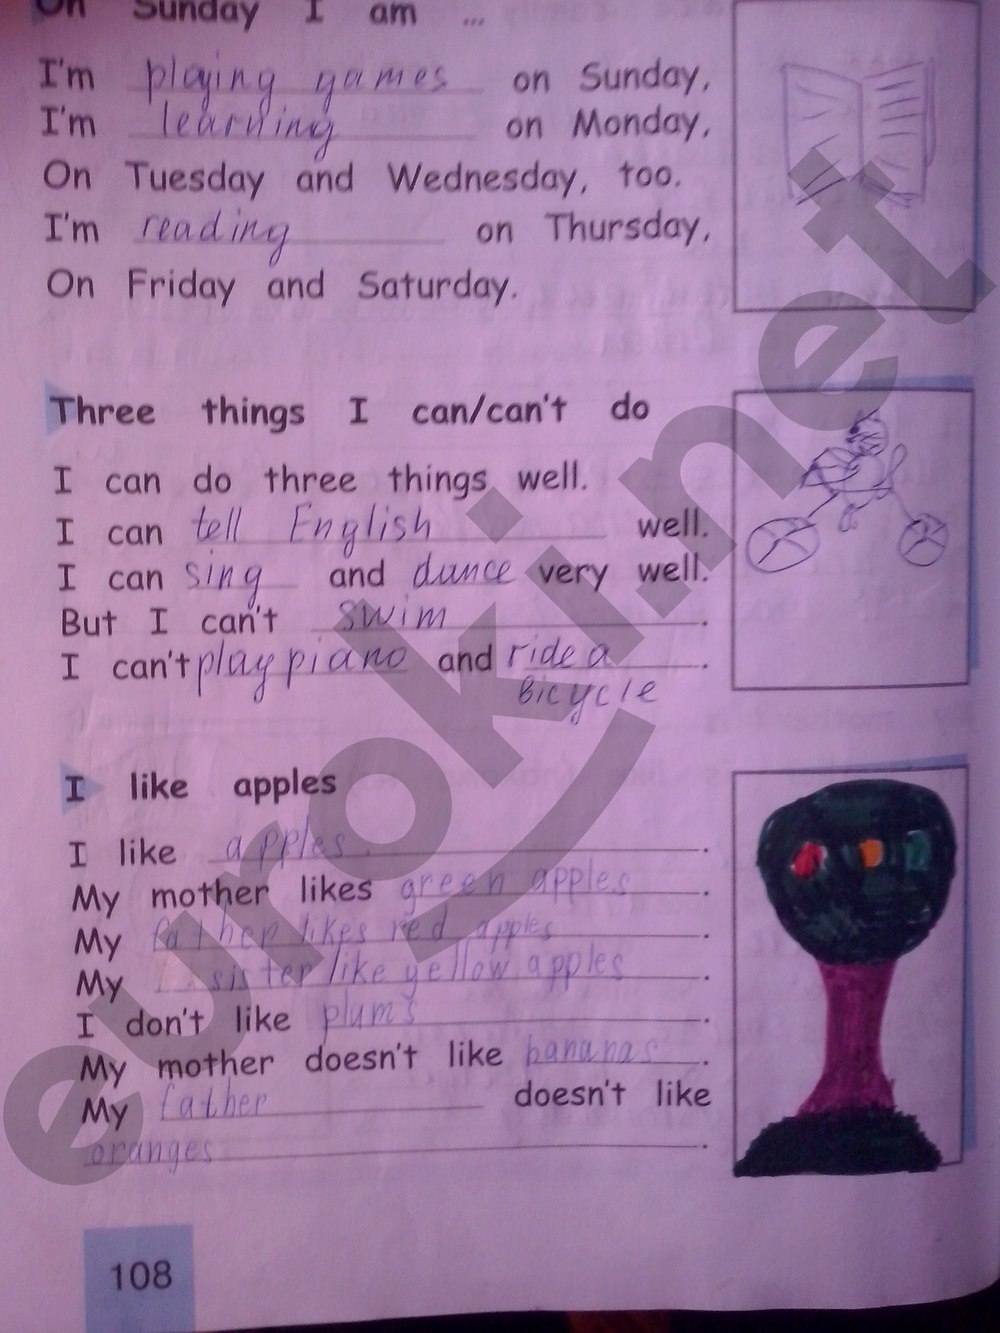 On Sunday I am ...
I'm playing games on Sunday,
I'm learning on Monday,
On Tuesday and Wednesday, too.
I'm reading on Thursday,
On Friday and Saturday.
Three things I can/can't do
I can do three things well.
I can tell English well.
I can sing and dance very well.
But I can't swim.
I can't play piano and ride a
Bicycle.
I like apples
I like apples.
My mother likes green apples.
My father likes red apples.
My sister like yellow apples.
I don't like plums.
My mother doesn't like bananas.
My father doesn't like
oranges.
108
euroki.net